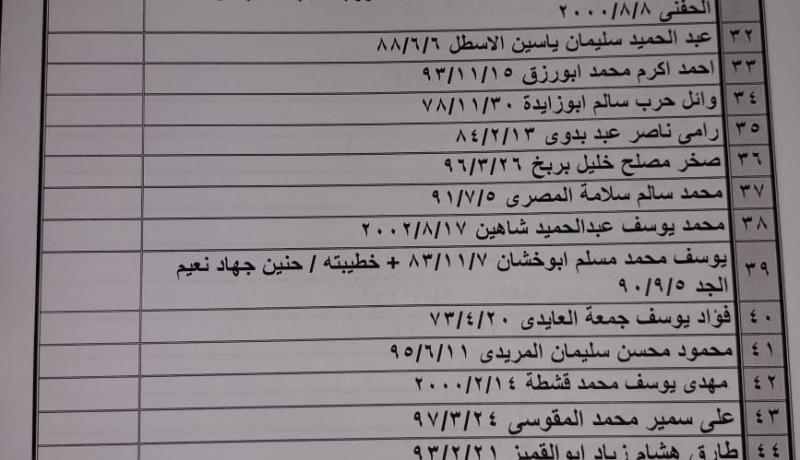 الحفنى ٢٠٠٠/٨/٨
٣٢ عبد الحميد سليمان ياسين الاسطل ٨٨/٦/٦
٣٣ احمد اكرم محمد ابورزق ٩٣/١١/١٥
٣٤ وائل حرب سالم ابوزايدة ٧٨/١١/٣٠
٣٥ رامى ناصر عبد بدوى ٨٤/٢/١٣
٣٦ صخر مصلح خليل بريخ ٩٦/٣/٢٦
٣٧ محمد سالم سلامة المصرى ٩١/٧/٥
٣٨ محمد يوسف عبدالحميد شاهين ٢٠٠٢/٨/١٧
٣٩ يوسف محمد مسلم ابوخشان ٨٣/١١/٧ + خطيبته / حنين جهاد نعيم
الجد ٩٠/٩/٥
٤٠ فؤاد يوسف جمعة العايدى ٧٣/٤/٢٠
٤١ محمود محسن سليمان المريدى ٩٥/٦/١١
٤٢ مهدى يوسف محمد قشطة ٢٠٠٠/٢/١٤
٤٣ على سمير محمد المقوسى ٩٧/٣/٢٤
٤٤ طارق هشام زياد ابوالقميز ٩٣/٢/٢١